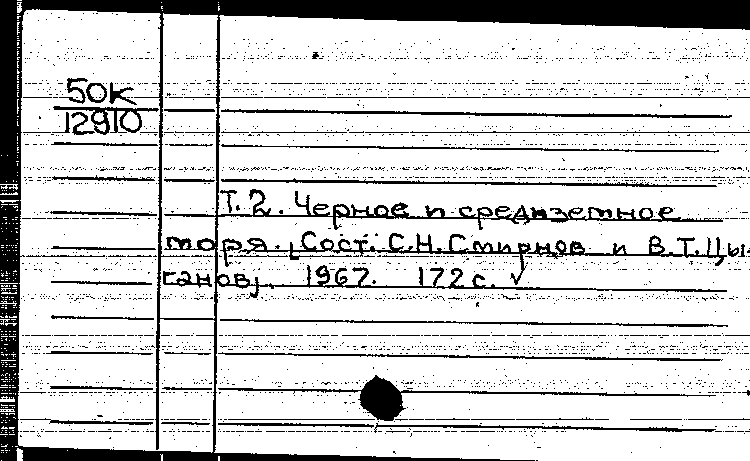 50К
12910
Т. 2. Черное и средиземное
моря. [Сост. С.Н. Смирнов и В.Т. Цы-
ганов]. 1967. 172 с. √